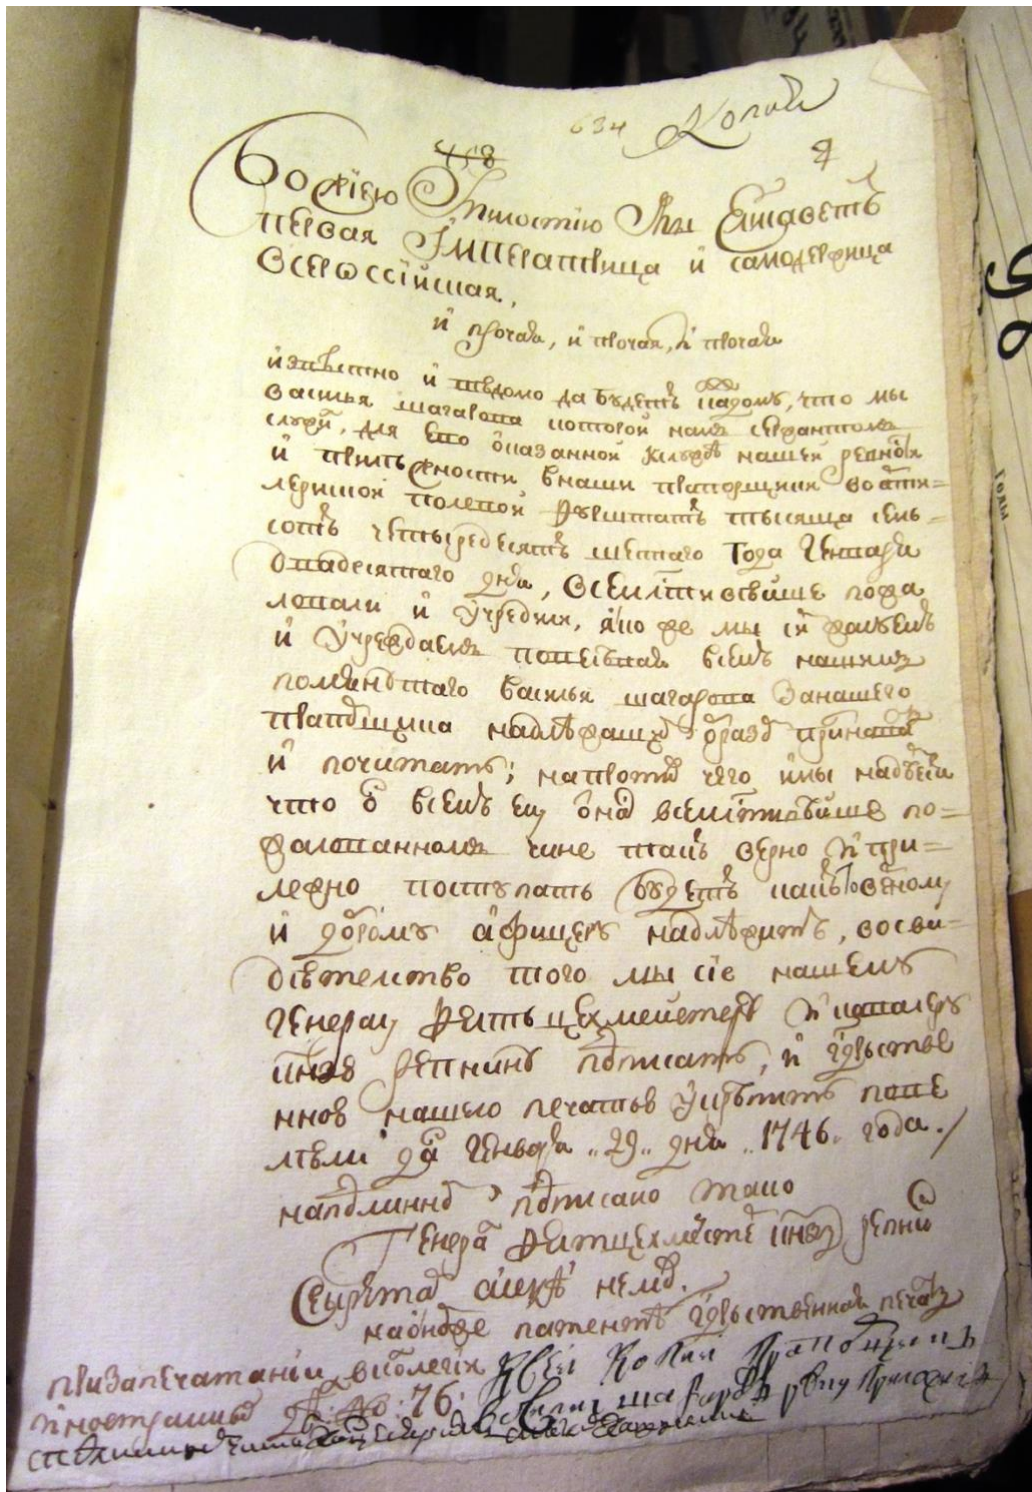 634 Копия
458
Божіею Милостию Мы Елисаветъ
первая Императрица и самодержица
Всероссійская,
и прочая, и прочая, и прочая
извѣстно и вѣдомо да будетъ каждому, что мы
василья шагарова которой намъ сержантомъ
служил, для его оказанной къ службѣ нашей ревности
и прилѣжности в наши прапорщики во арти=
лериской полевой тысяща семь=
сотъ четыредесятъ шестаго года Генваря
дня, всемилостивѣйше пожа
ловали и учредили, яко же мы симъ жалуемъ
и учреждаемъ повелѣвая всемъ нашимъ
помянутаго василья шагарова за нашего
прапорщика надлѣжащим образом признавать
и почитать; напротив чего и мы надѣемся
что он в всемъ ему от нас всемилостивѣйше по=
жалованномъ чине такъ вѣрно и при=
лежно поступать будетъ какъ то вѣрному
и доброму афицеру надлѣжитъ, во сви=
дѣтелство того мы сіе нашему
генералу фелтьцехмейстеру и кавалеру
князю репнину подписать, и государстве
нною нашею печатью укрѣпить пове
лѣли дан генваря „29„ дня „1746„ года.
на подлинном подписано тако
Генерал фелтцехмейстер княз репнин
Секретарь нелюб.
на оном же патенте государственная печать
при запечатании в коллегии
иностранных дел № 76. к сей копии прапорщик
василей шагаров руку приложил